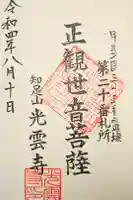 第二十番札所
正観世音菩薩
知足山
光雲寺
令和四年八月十日